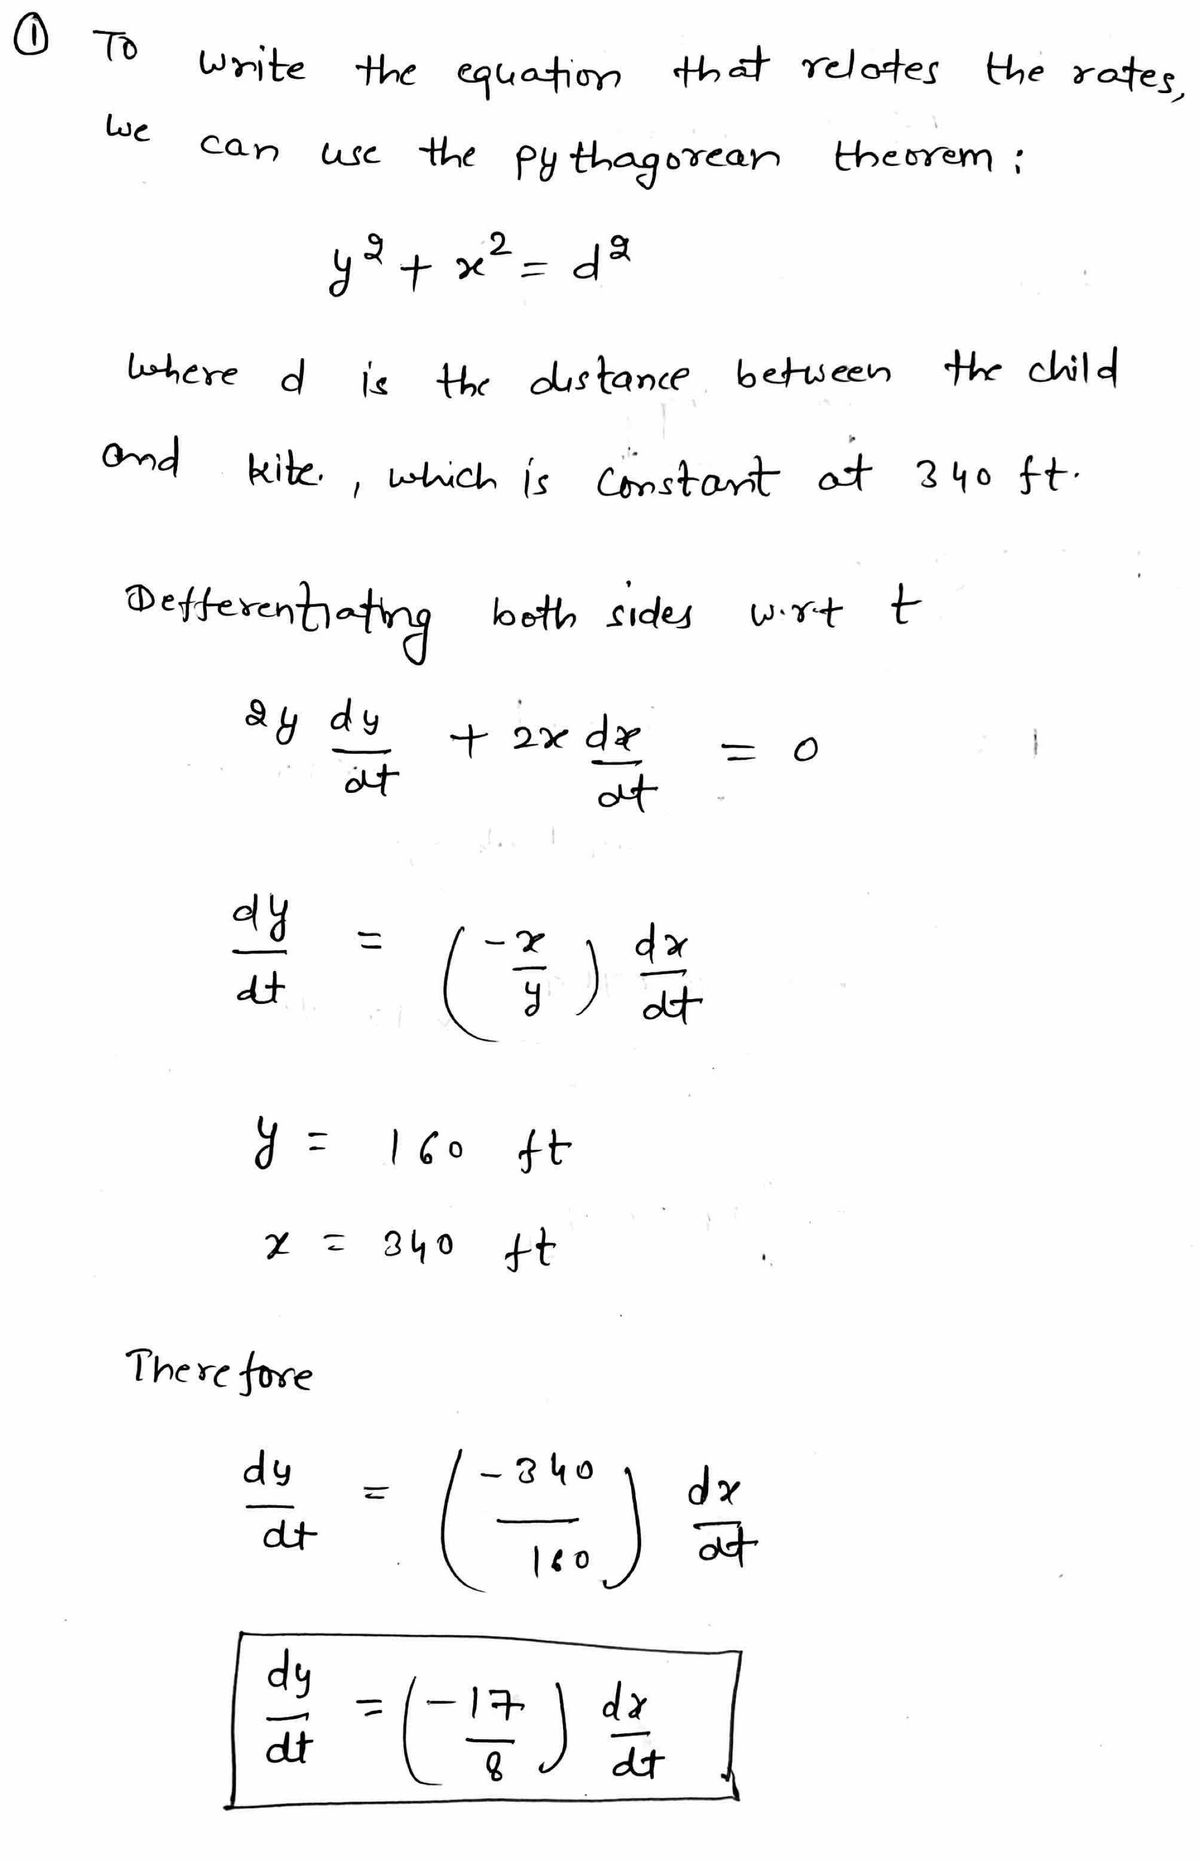 ① To write the equation that relates the rates,
we can use the pythagorean theorem :
y² + x² = d²
where d is the distance between the child
and kite. , which is constant at 340 ft.
Defferentiating both sides w.r.t t
2y dy/dt + 2x dx/dt = 0
dy/dt = (-x/y) dx/dt
y = 160 ft
x = 340 ft
Therefore
dy/dt = (-340/160) dx/dt
dy/dt = (-17/8) dx/dt